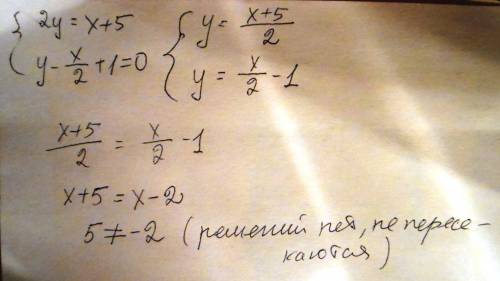 { 2y = x+5 { y = (x+5)/2
y - x/2 + 1 = 0 y = x/2 - 1
(x+5)/2 = x/2 - 1
x+5 = x-2
5 ≠ -2 (решений нет, не пересе-
каются)